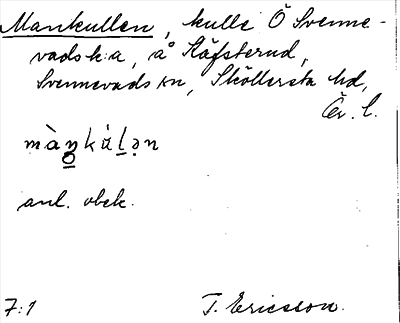 Mankullen, kulle Ö Svenne-
vads k:a, å Käfsterud,
Svennevads sn, Sköllersta hd,
Ör. l.
anl. obek.
7:1 T. Ericsson.